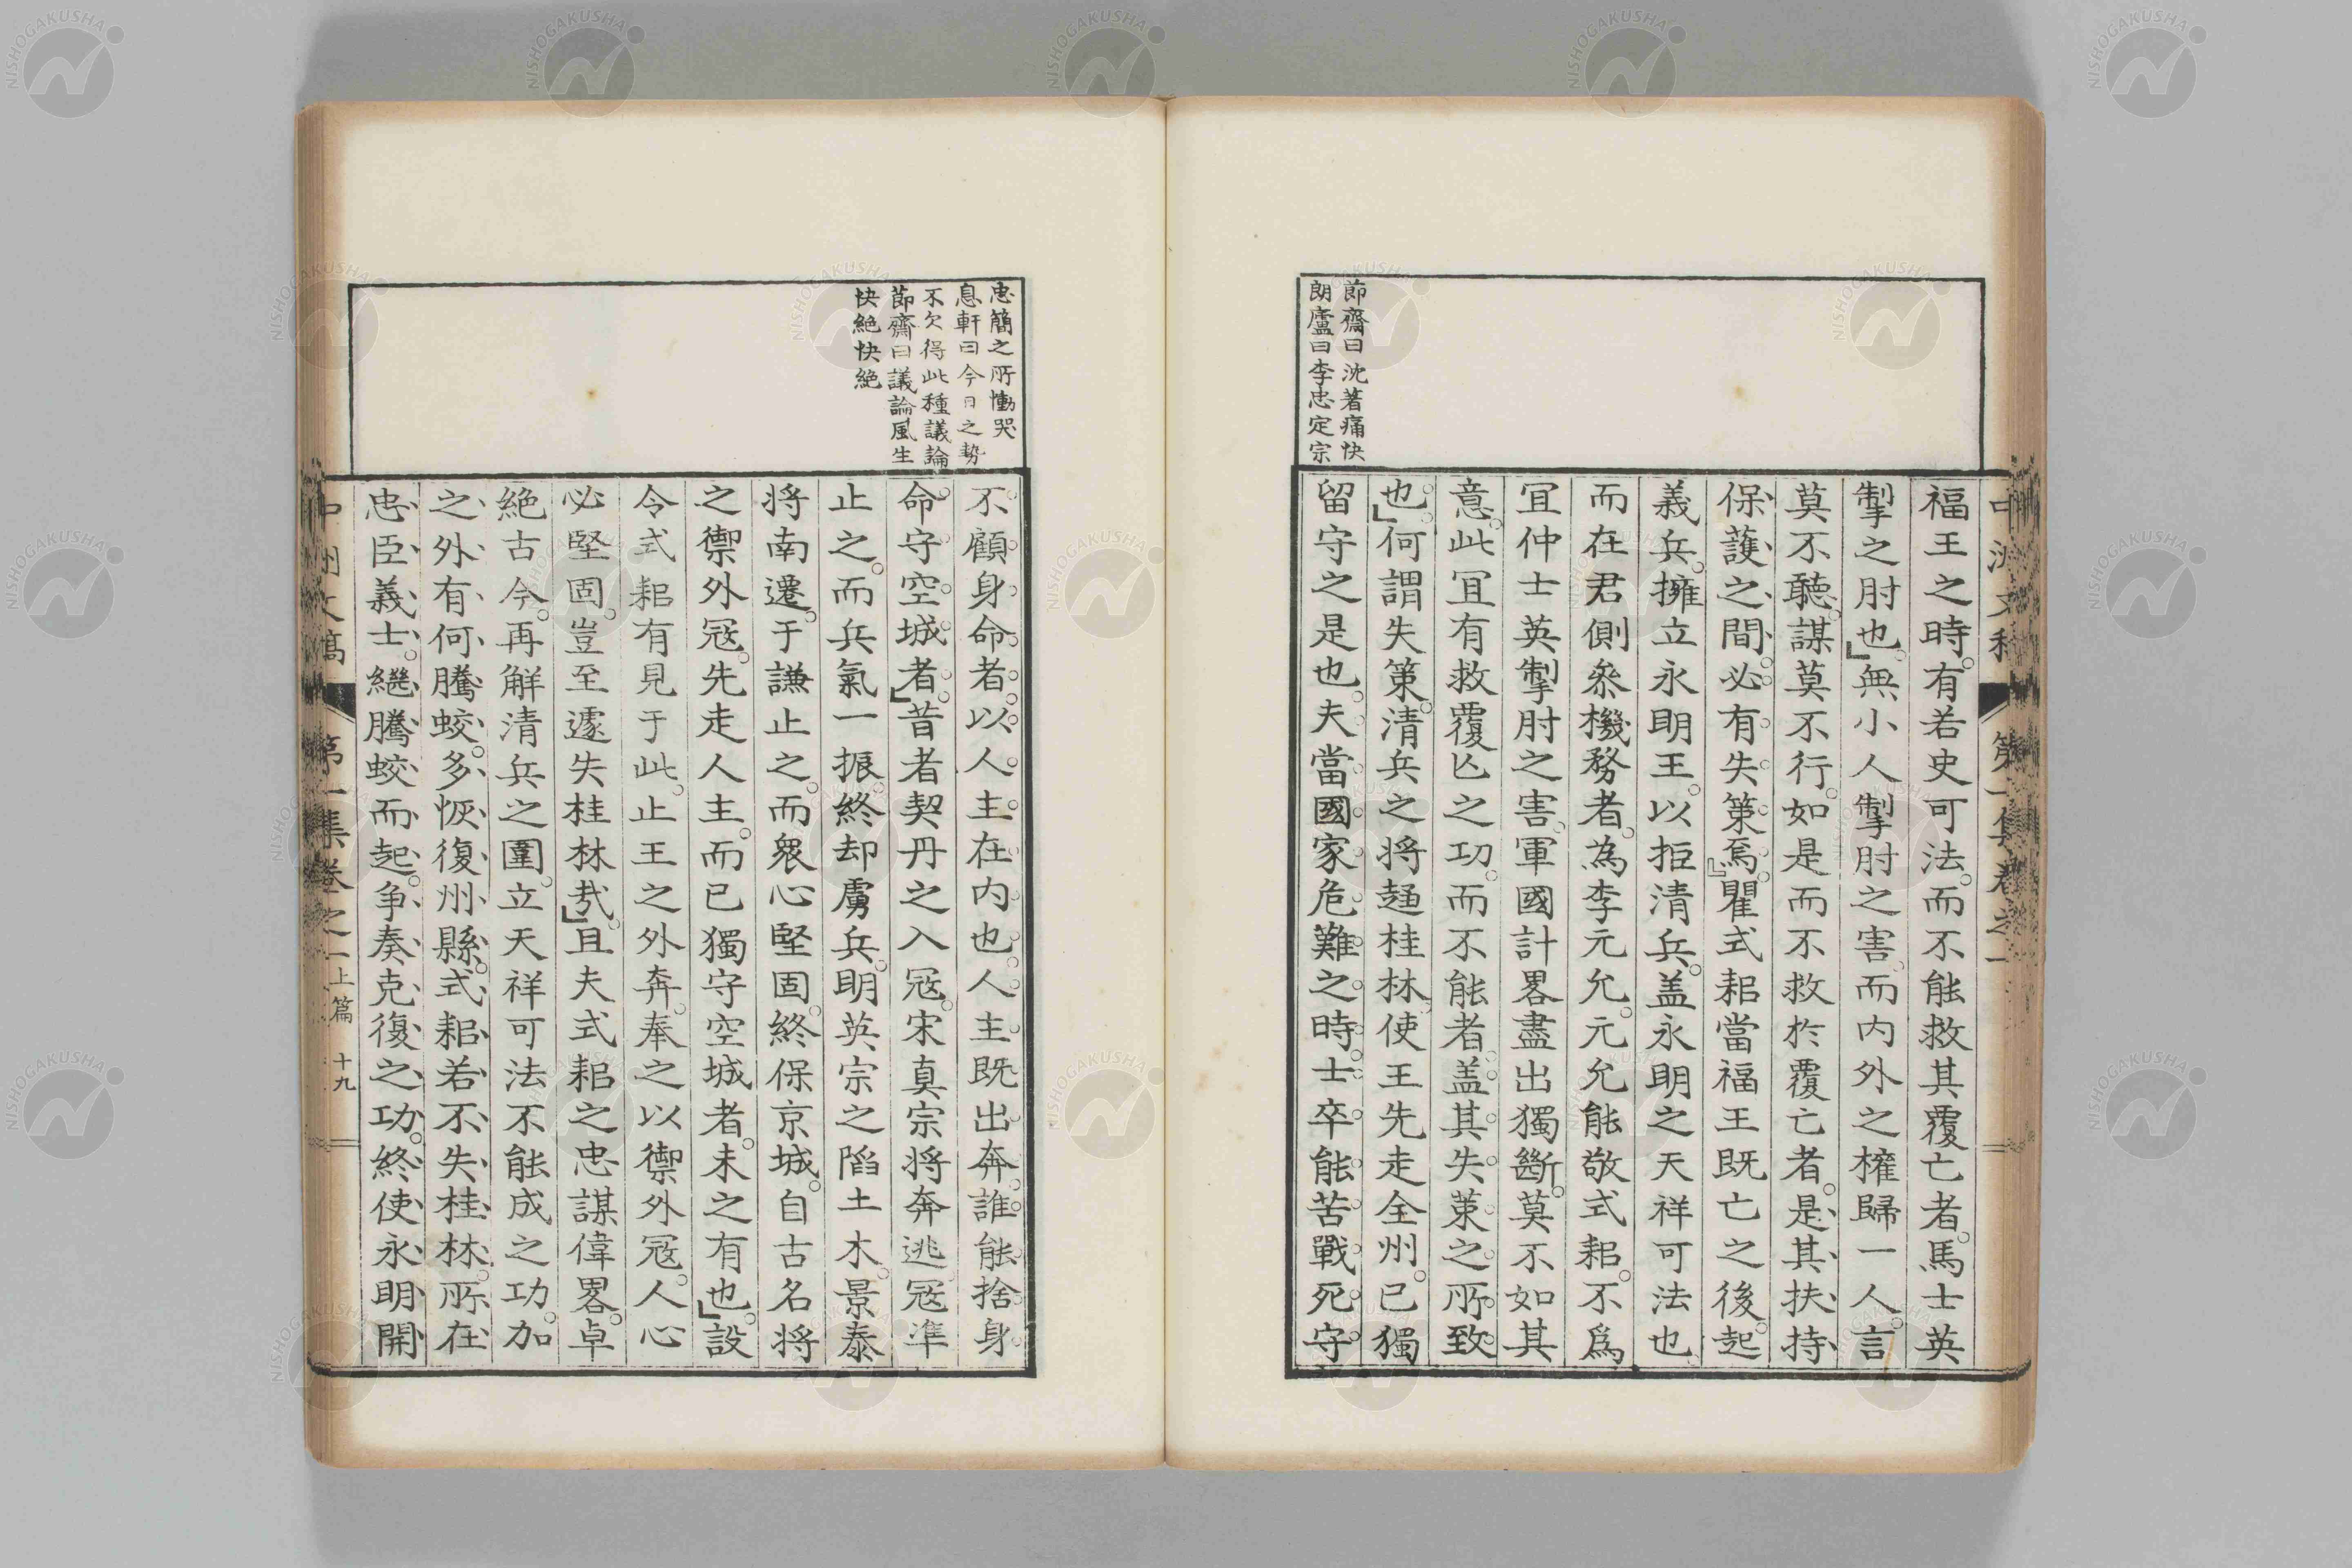 節齋曰沈著痛快
朗廬曰李忠定宗
福王之時。有若史可法。而不能救其覆亡者。馬士英
掣之肘也。無小人掣肘之害。而内外之權歸一人。言
莫不聽。謀莫不行。如是而不救於覆亡者。是其扶持
保護之間。必有失策焉。瞿式耜當福王既亡之後。起
義兵。擁立永明王。以拒清兵。蓋永明之天祥可法也。
而在君側參機務者。為李元允。元允能敬式耜。不爲
宜仲士英掣肘之害。軍國計畧盡出獨斷。莫不如其
意。此宜有救覆亾之功。而不能者。盖其失策之所致
也。何謂失策。清兵之将趨桂林。使王先走全州。已獨
留守之是也。夫當國家危難之時。士卒能苦戰死守。
忠簡之所慟哭
息軒曰今日之勢
不欠得此種議論
節齋曰議論風生
快絶快絶
不顧身命者。以人主在内也。人主既出奔。誰能捨身
命守空城者。昔者契丹之入寇。宋真宗将奔逃。寇準
止之。而兵氣一振。終却虜兵。明英宗之陷土木。景泰
将南遷。于謙止之。而衆心堅固。終保京城。自古名将
之禦外寇。先走人主。而已獨守空城者。未之有也。設
令式耜有見于此。止王之外奔。奉之以禦外寇。人心
必堅固。豈至遽失桂林哉。且夫式耜之忠謀偉畧。卓
絶古今。再解清兵之圍。立天祥可法不能成之功。加
之外有何騰蛟。多恢復州縣。式耜若不失桂林。所在
忠臣義士。繼騰蛟而起。争奏克復之功。終使永明開
中洲文稿 第一集卷之一上篇 十九